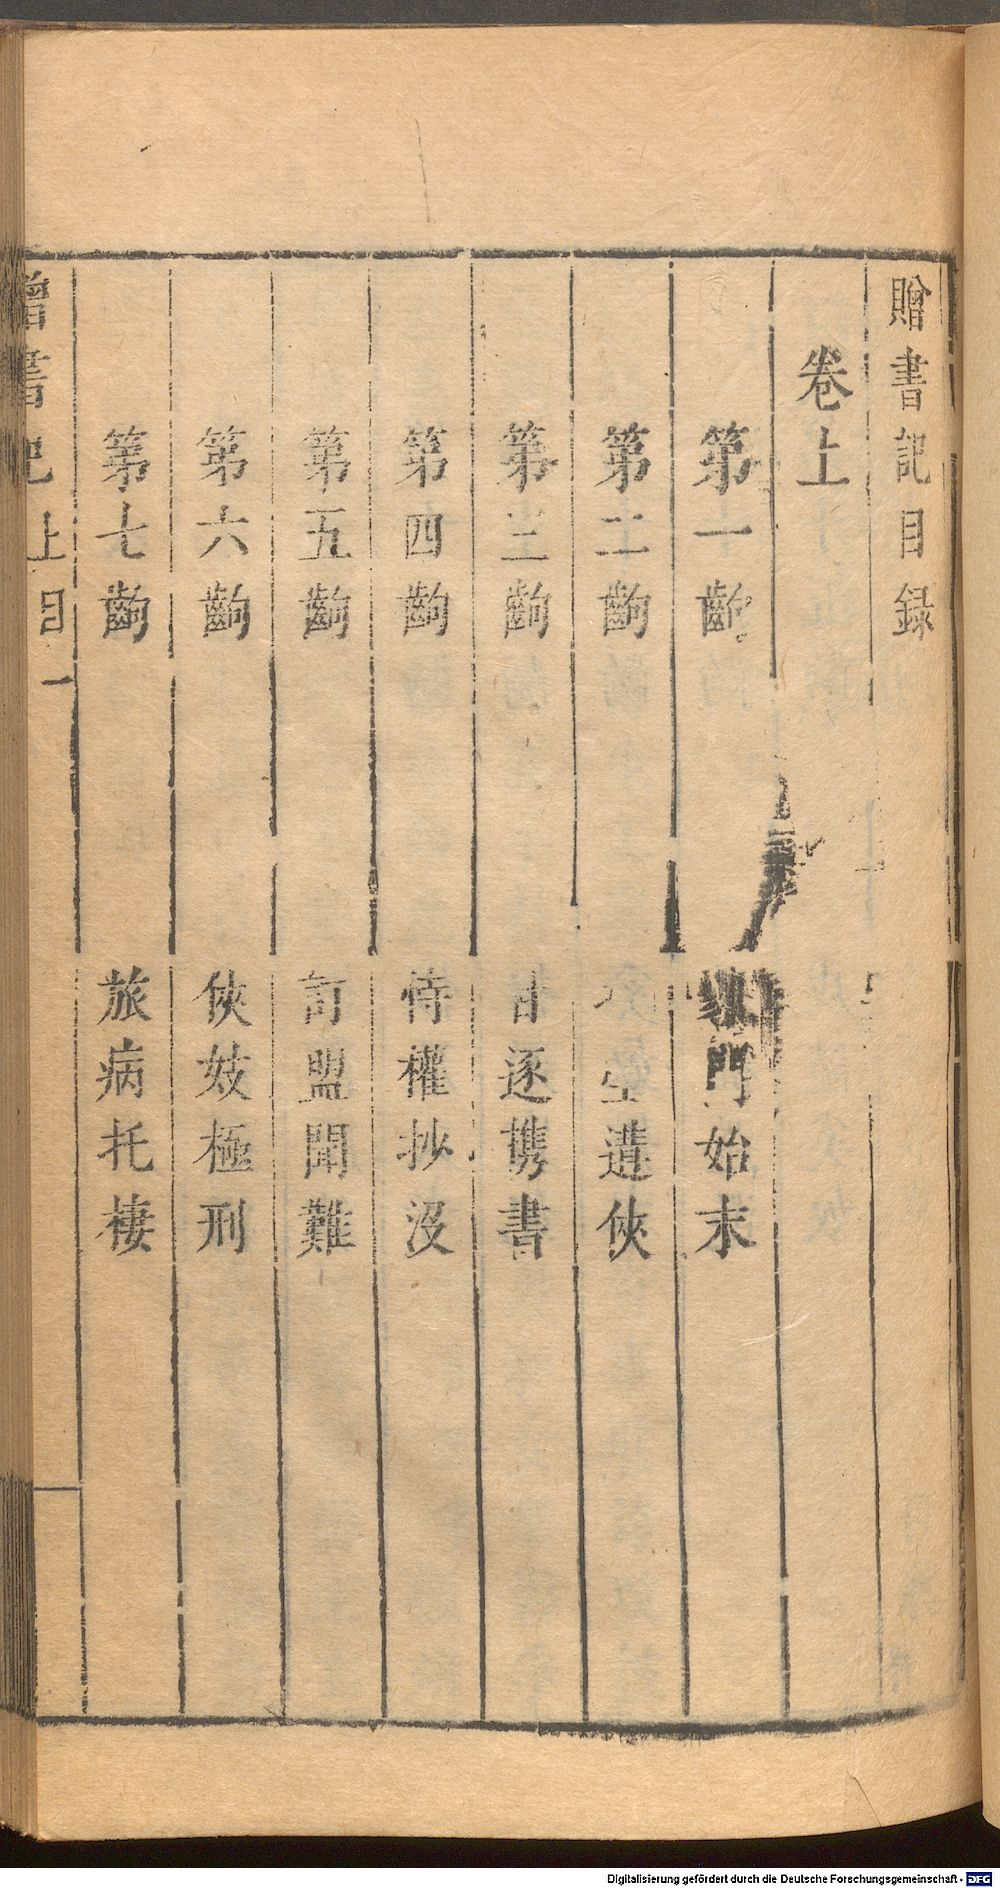 贈書記目録
卷上
第一齣 門始末
第二齣 遘俠
第三齣 甘逐携書
第四齣 恃權抄沒
第五齣 訂盟聞難
第六齣 俠妓極刑
第七齣 旅病托棲
贈書記 上目 一
Digitalisierung gefördert durch die Deutsche Forschungsgemeinschaft - DFG